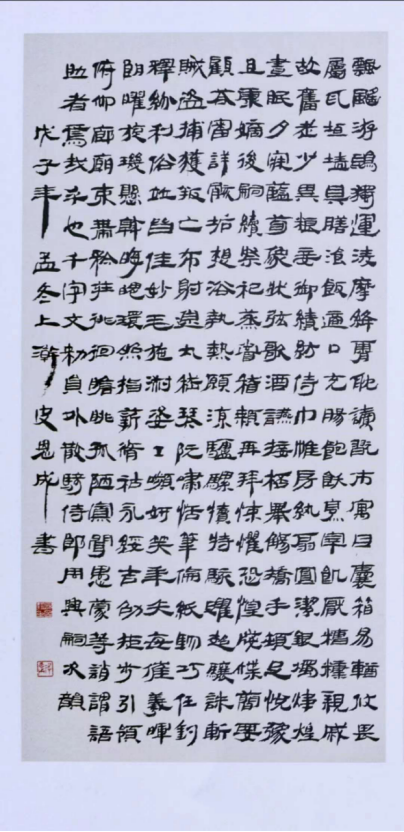 飄颻游鵾獨運凌摩絳霄耽讀翫市寓目囊箱易輶攸畏
屬耳垣墻具膳飡飯適口充腸飽飫烹宰飢厭糟糠親戚
故舊老少異粮妾御績紡侍巾帷房紈扇圓潔銀燭煒煌
晝眠夕寐藍筍象牀弦歌酒讌接杯舉觴矯手頓足悅豫
且康嫡後嗣續祭祀蒸嘗稽顙再拜悚懼恐惶牋牒簡要
顧答審詳骸垢想浴執熱願涼驢騾犢特駭躍超驤誅斬
賊盜捕獲叛亡布射遼丸嵇琴阮嘯恬筆倫紙鈞巧任釣
釋紛利俗並皆佳妙毛施淑姿工顰妍笑年矢每催羲暉
朗曜旋璣懸斡晦魄環照指薪修祜永綏吉劭矩步引領
俯仰廊廟束帶矜莊徘徊瞻眺孤陋寡聞愚蒙等誚謂語
助者焉哉乎也千字文勅員外散騎侍郎周興嗣次韻
戊子年孟冬上澣皮思成書